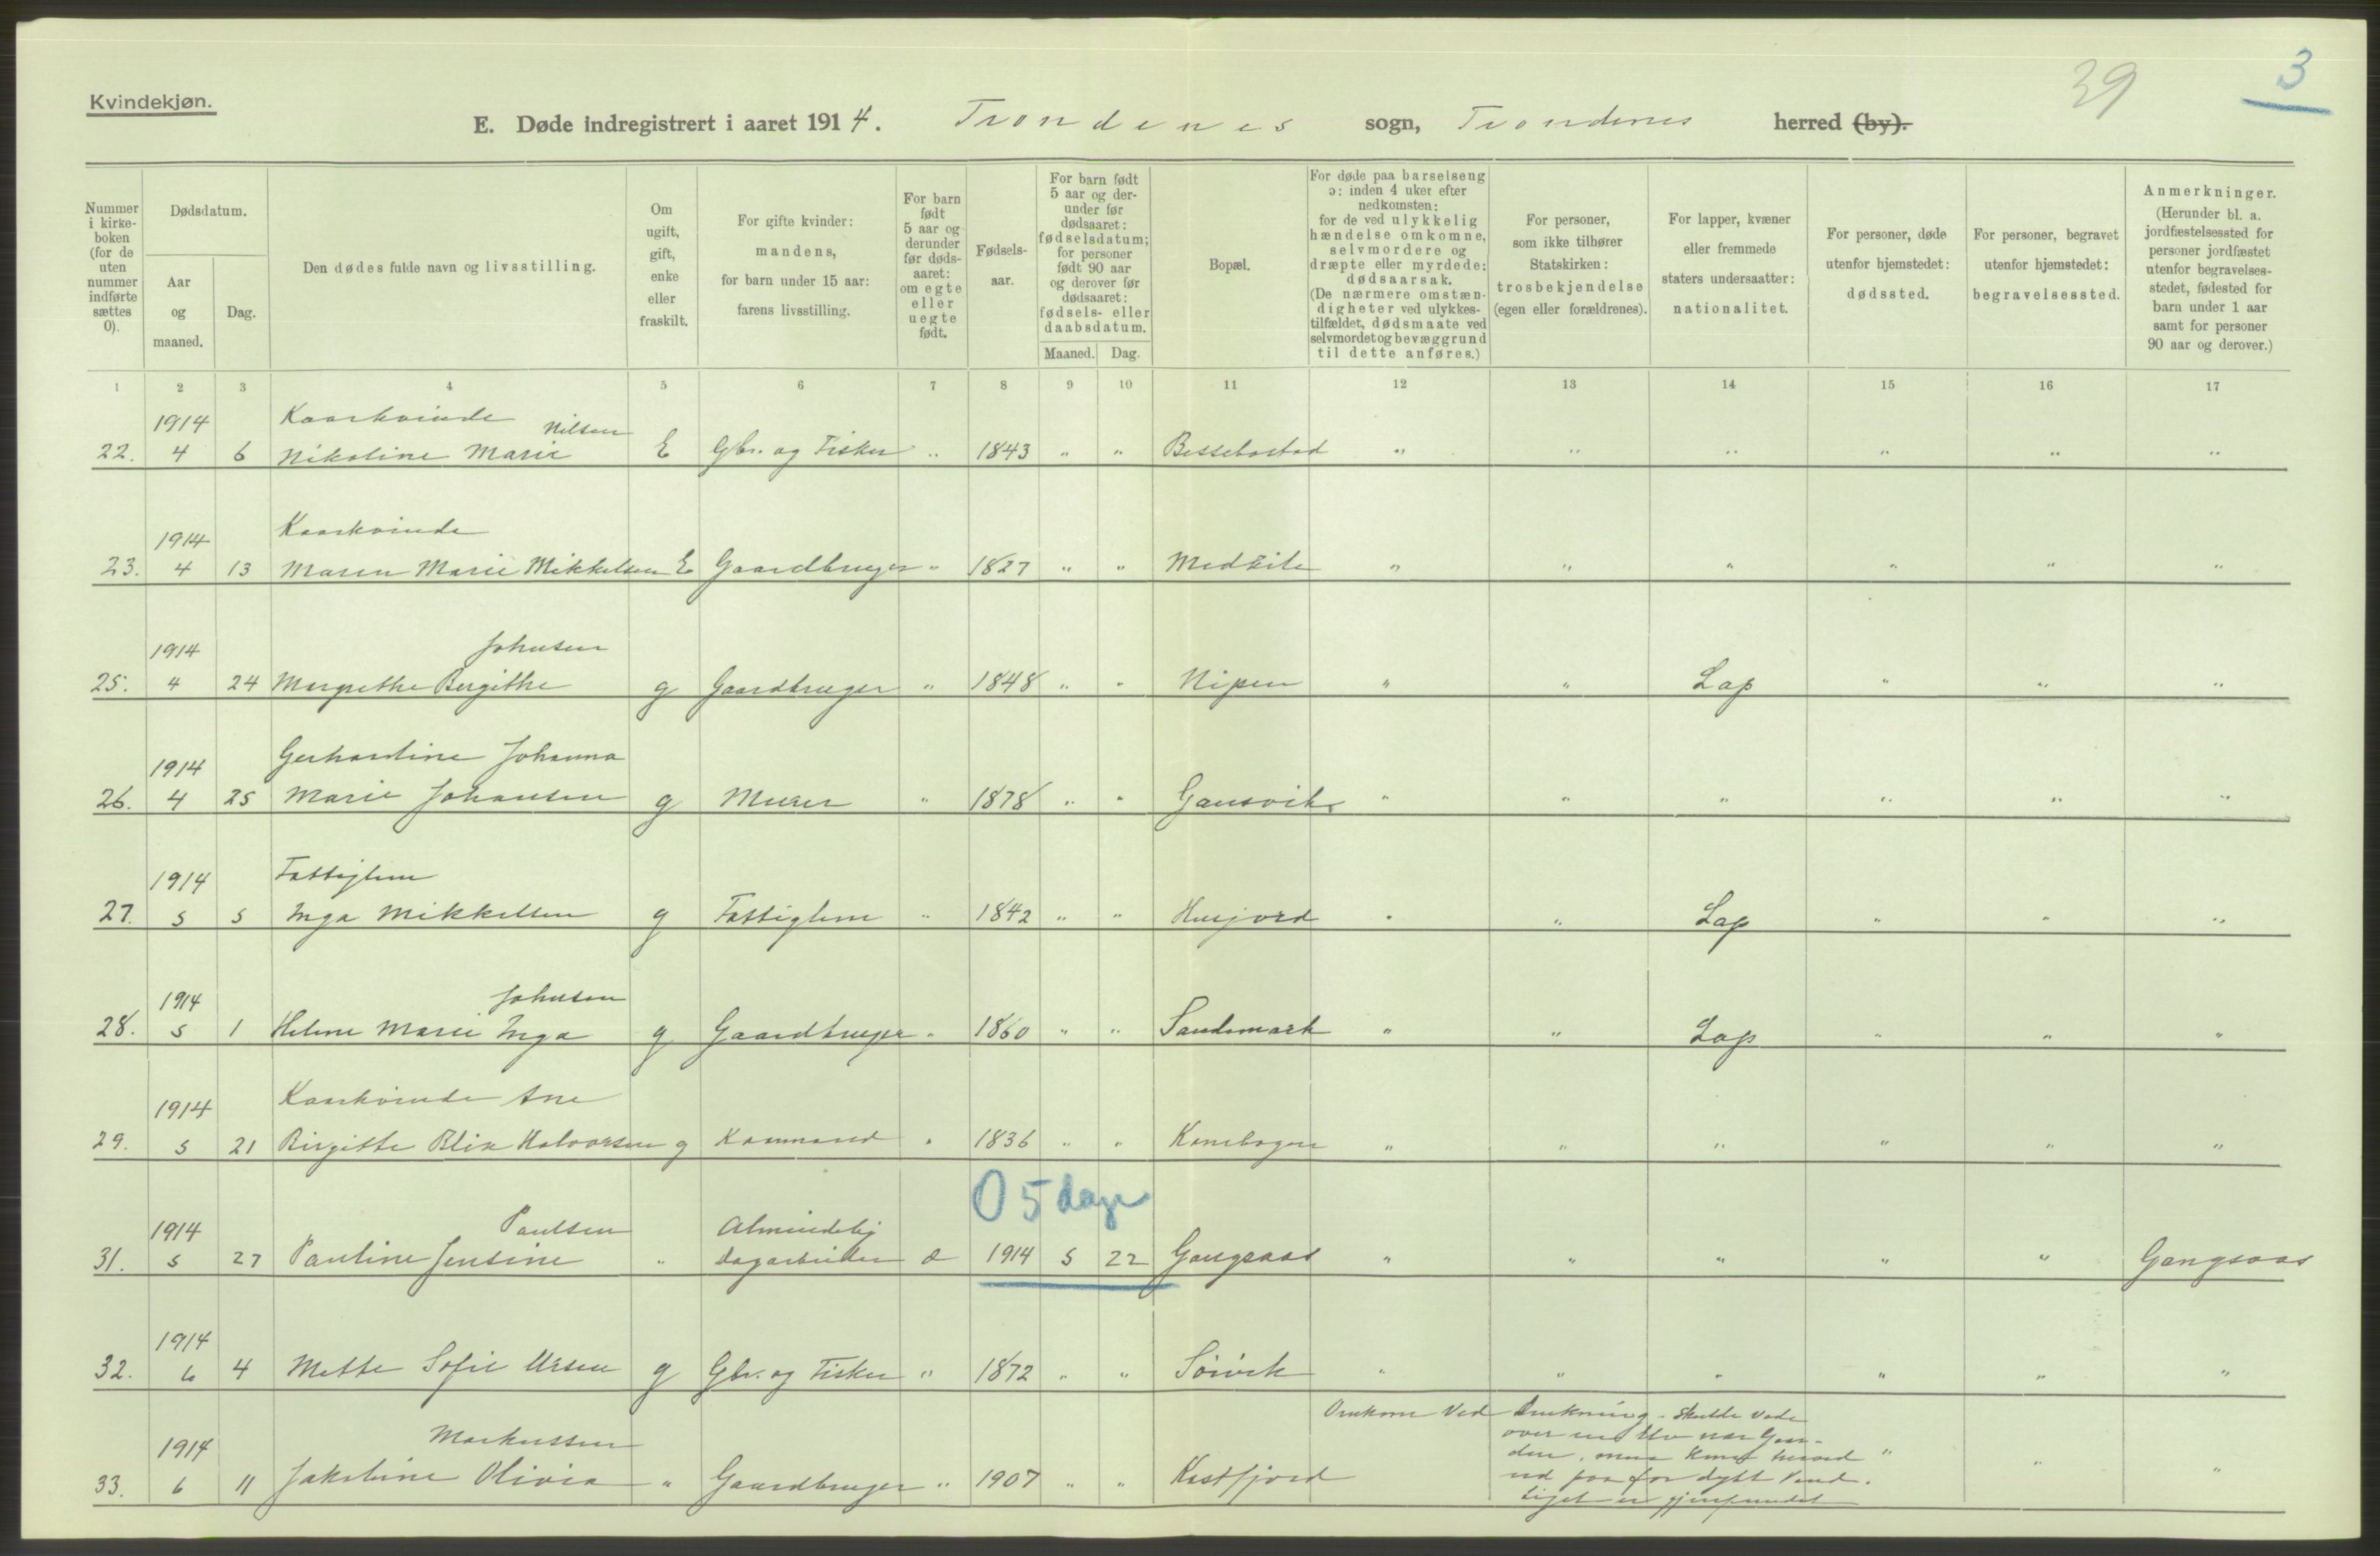 Kvindekjøn.
39
3
E. Døde indregistrert i aaret 1914. Trondenes sogn, Trondenes herred (by).
Nummer i kirke-boken (for de uten nummer indførte sættes 0).
Dødsdatum.
Aar og maaned.
Dag.
Den dødes fulde navn og livsstilling.
Om ugift, gift, enke eller fraskilt.
For gifte kvinder: mandens, for barn under 15 aar: farens livsstilling.
For barn født 5 aar og derunder før døds-aaret: om egte eller uegte født.
Fødsels-aar.
For barn født 5 aar og der-under før dødsaaret: fødselsdatum; for personer født 90 aar og derover før dødsaaret: fødsels- eller daabsdatum.
Maaned. Dag.
Bopæl.
For døde paa barselseng ɔ: inden 4 uker efter nedkomsten: for de ved ulykkelig hændelse omkomne, selvmordere og dræpte eller myrdede: dødsaarsak. (De nærmere omstæn-digheter ved ulykkes-tilfældet, dødsmaate ved selvmordet og bevæggrund til dette anføres.)
For personer, som ikke tilhører Statskirken: trosbekjendelse (egen eller forældrenes).
For lapper, kvæner eller fremmede staters undersaatter: nationalitet.
For personer, døde utenfor hjemstedet: dødssted.
For personer, begravet utenfor hjemstedet: begravelsessted.
Anmerkninger. (Herunder bl. a. jordfæstelsessted for personer jordfæstet utenfor begravelses-stedet, fødested for barn under 1 aar samt for personer 90 aar og derover.)
1 2 3 4 5 6 7 8 9 10 11 12 13 14 15 16 17
1914 Kaarkvinde Nilsen
22. 4 6 Nikoline Marie E Gbr. og Fisker " 1843 " " Bessebostad " " " " " "
1914 Kaarkvinde
23. 4 13 Maren Marie Mikkelsen E Gaardbruger " 1827 " " Medkile " " " " " "
1914 Johnsen
25. 4 24 Margrethe Bergithe g Gaardbruger " 1848 " " Nipen " " Lap " " "
1914 Gerhardine Johanna
26. 4 25 Marie Johansen g Murer " 1878 " " Gausvik " " " " " "
1914 Fattiglem
27. 5 5 Inga Mikkelsen g Fattiglem " 1842 " " Husjord " " Lap " " "
1914 Johnsen
28. 5 1 Helene Marie Inga g Gaardbruger " 1860 " " Sandsmark " " Lap " " "
1914 Kaarkvinde Ane
29. 5 21 Birgitte Blix Halvorsen g Kaarmand " 1836 " " Kanebogen " " " " " "
0 5 dage
1914 Paulsen Almindelig
31. 5 27 Pauline Jensine " Dagarbeider 1914 5 22 Gangsaas " " " " " Gangsaas
1914
32. 6 4 Mette Sofie Ursen g Gbr. og Fisker " 1872 " " Sørvik " " " " " "
1914 Markussen
33. 6 11 Jakobine Olivia " Gaardbruger " 1907 " " Kasfjord " " "
Omkom ved drukning - skulde vade
over en elv nær Gaar-
den, men kom herved
ud paa for dybt Vand.
Liget er gjenfundet